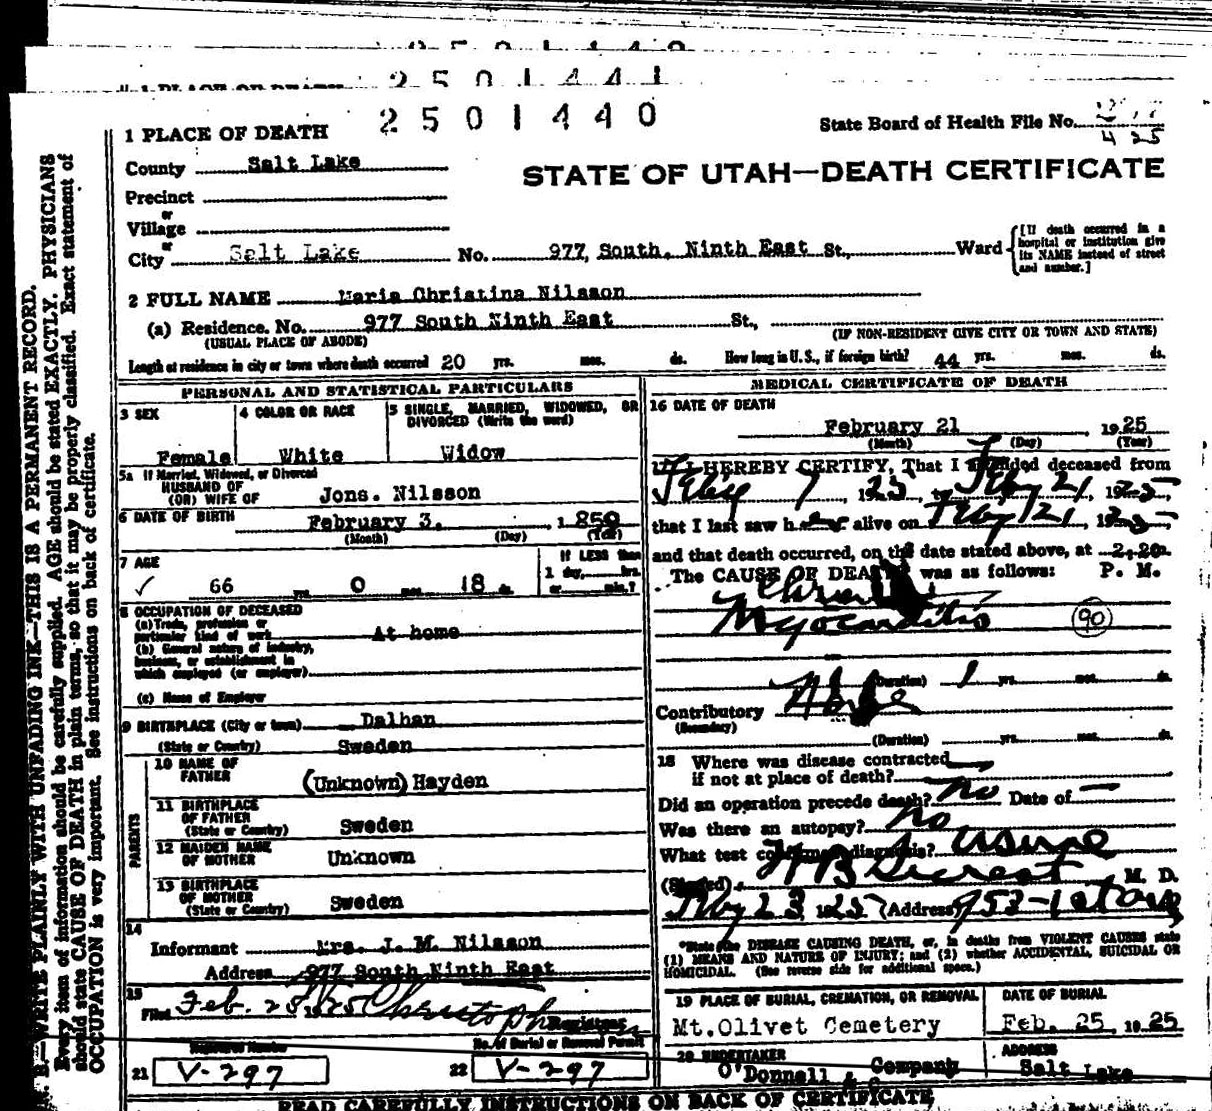 2501441
2501440
1 PLACE OF DEATH
State Board of Health File No.
4 25
County Salt Lake
STATE OF UTAH—DEATH CERTIFICATE
Precinct
or
Village
or
City Salt Lake No. 977, South, Ninth East St., Ward
[If death occurred in a
hospital or institution give
its NAME instead of street
and number.]
2 FULL NAME Maria Christina Nilsson
(a) Residence. No. 977 South Ninth East St.,
(USUAL PLACE OF ABODE)
(IF NON-RESIDENT GIVE CITY OR TOWN AND STATE)
Length of residence in city or town where death occurred 20 yrs. mos. ds. How long in U. S., if foreign birth? 44 yrs. mos. ds.
PERSONAL AND STATISTICAL PARTICULARS
3 SEX
Female
4 COLOR OR RACE
White
5 SINGLE, MARRIED, WIDOWED, OR
DIVORCED (Write the word)
Widow
5a If Married, Widowed, or Divorced
HUSBAND OF
(OR) WIFE OF Jons. Nilsson
6 DATE OF BIRTH February 3. , 1859
(Month) (Day) (Year)
7 AGE
66 yrs. 0 mos. 18 ds.
If LESS than
1 day, hrs.
or min.?
8 OCCUPATION OF DECEASED
(a) Trade, profession or
particular kind of work At home
(b) General nature of industry,
business, or establishment in
which employed (or employer)
(c) Name of Employer
9 BIRTHPLACE (City or town) Dalhan
(State or Country) Sweden
PARENTS
10 NAME OF
FATHER (Unknown) Hayden
11 BIRTHPLACE
OF FATHER
(State or Country) Sweden
12 MAIDEN NAME
OF MOTHER Unknown
13 BIRTHPLACE
OF MOTHER
(State or Country) Sweden
14
Informant Mrs. J. M. Nilsson
Address 977 South Ninth East
15
Filed Feb. 25 1925
Registrar
Registered Number
21 V-297
No. of Burial or Removal Permit
22 V-297
MEDICAL CERTIFICATE OF DEATH
16 DATE OF DEATH
February 21 , 1925
(Month) (Day) (Year)
17 I HEREBY CERTIFY, That I attended deceased from
Feby 7, 1925, to Feby 21, 1925,
that I last saw her alive on Feby 21, 1925,
and that death occurred, on the date stated above, at 2.20
The CAUSE OF DEATH was as follows: P. M.
Chronic
Myocarditis 90
(Duration) 1 yrs. mos. ds.
Contributory
(Secondary)
(Duration) yrs. mos. ds.
18 Where was disease contracted
if not at place of death?
Did an operation precede death? No Date of —
Was there an autopsy? No
What test confirmed diagnosis?
(Signed) M. D.
Feby 23, 1925 (Address)
*State the DISEASE CAUSING DEATH, or, in deaths from VIOLENT CAUSES state
(1) MEANS AND NATURE OF INJURY; and (2) whether ACCIDENTAL, SUICIDAL OR
HOMICIDAL. (See reverse side for additional space.)
19 PLACE OF BURIAL, CREMATION, OR REMOVAL
Mt.Olivet Cemetery
DATE OF BURIAL
Feb. 25, 1925
20 UNDERTAKER
O'Donnell & Company
ADDRESS
Salt Lake
READ CAREFULLY INSTRUCTIONS ON BACK OF CERTIFICATE
N. B.—WRITE PLAINLY WITH UNFADING INK—THIS IS A PERMANENT RECORD.
Every item of information should be carefully supplied. AGE should be stated EXACTLY. PHYSICIANS
should state CAUSE OF DEATH in plain terms, so that it may be properly classified. Exact statement of
OCCUPATION is very important. See instructions on back of certificate.